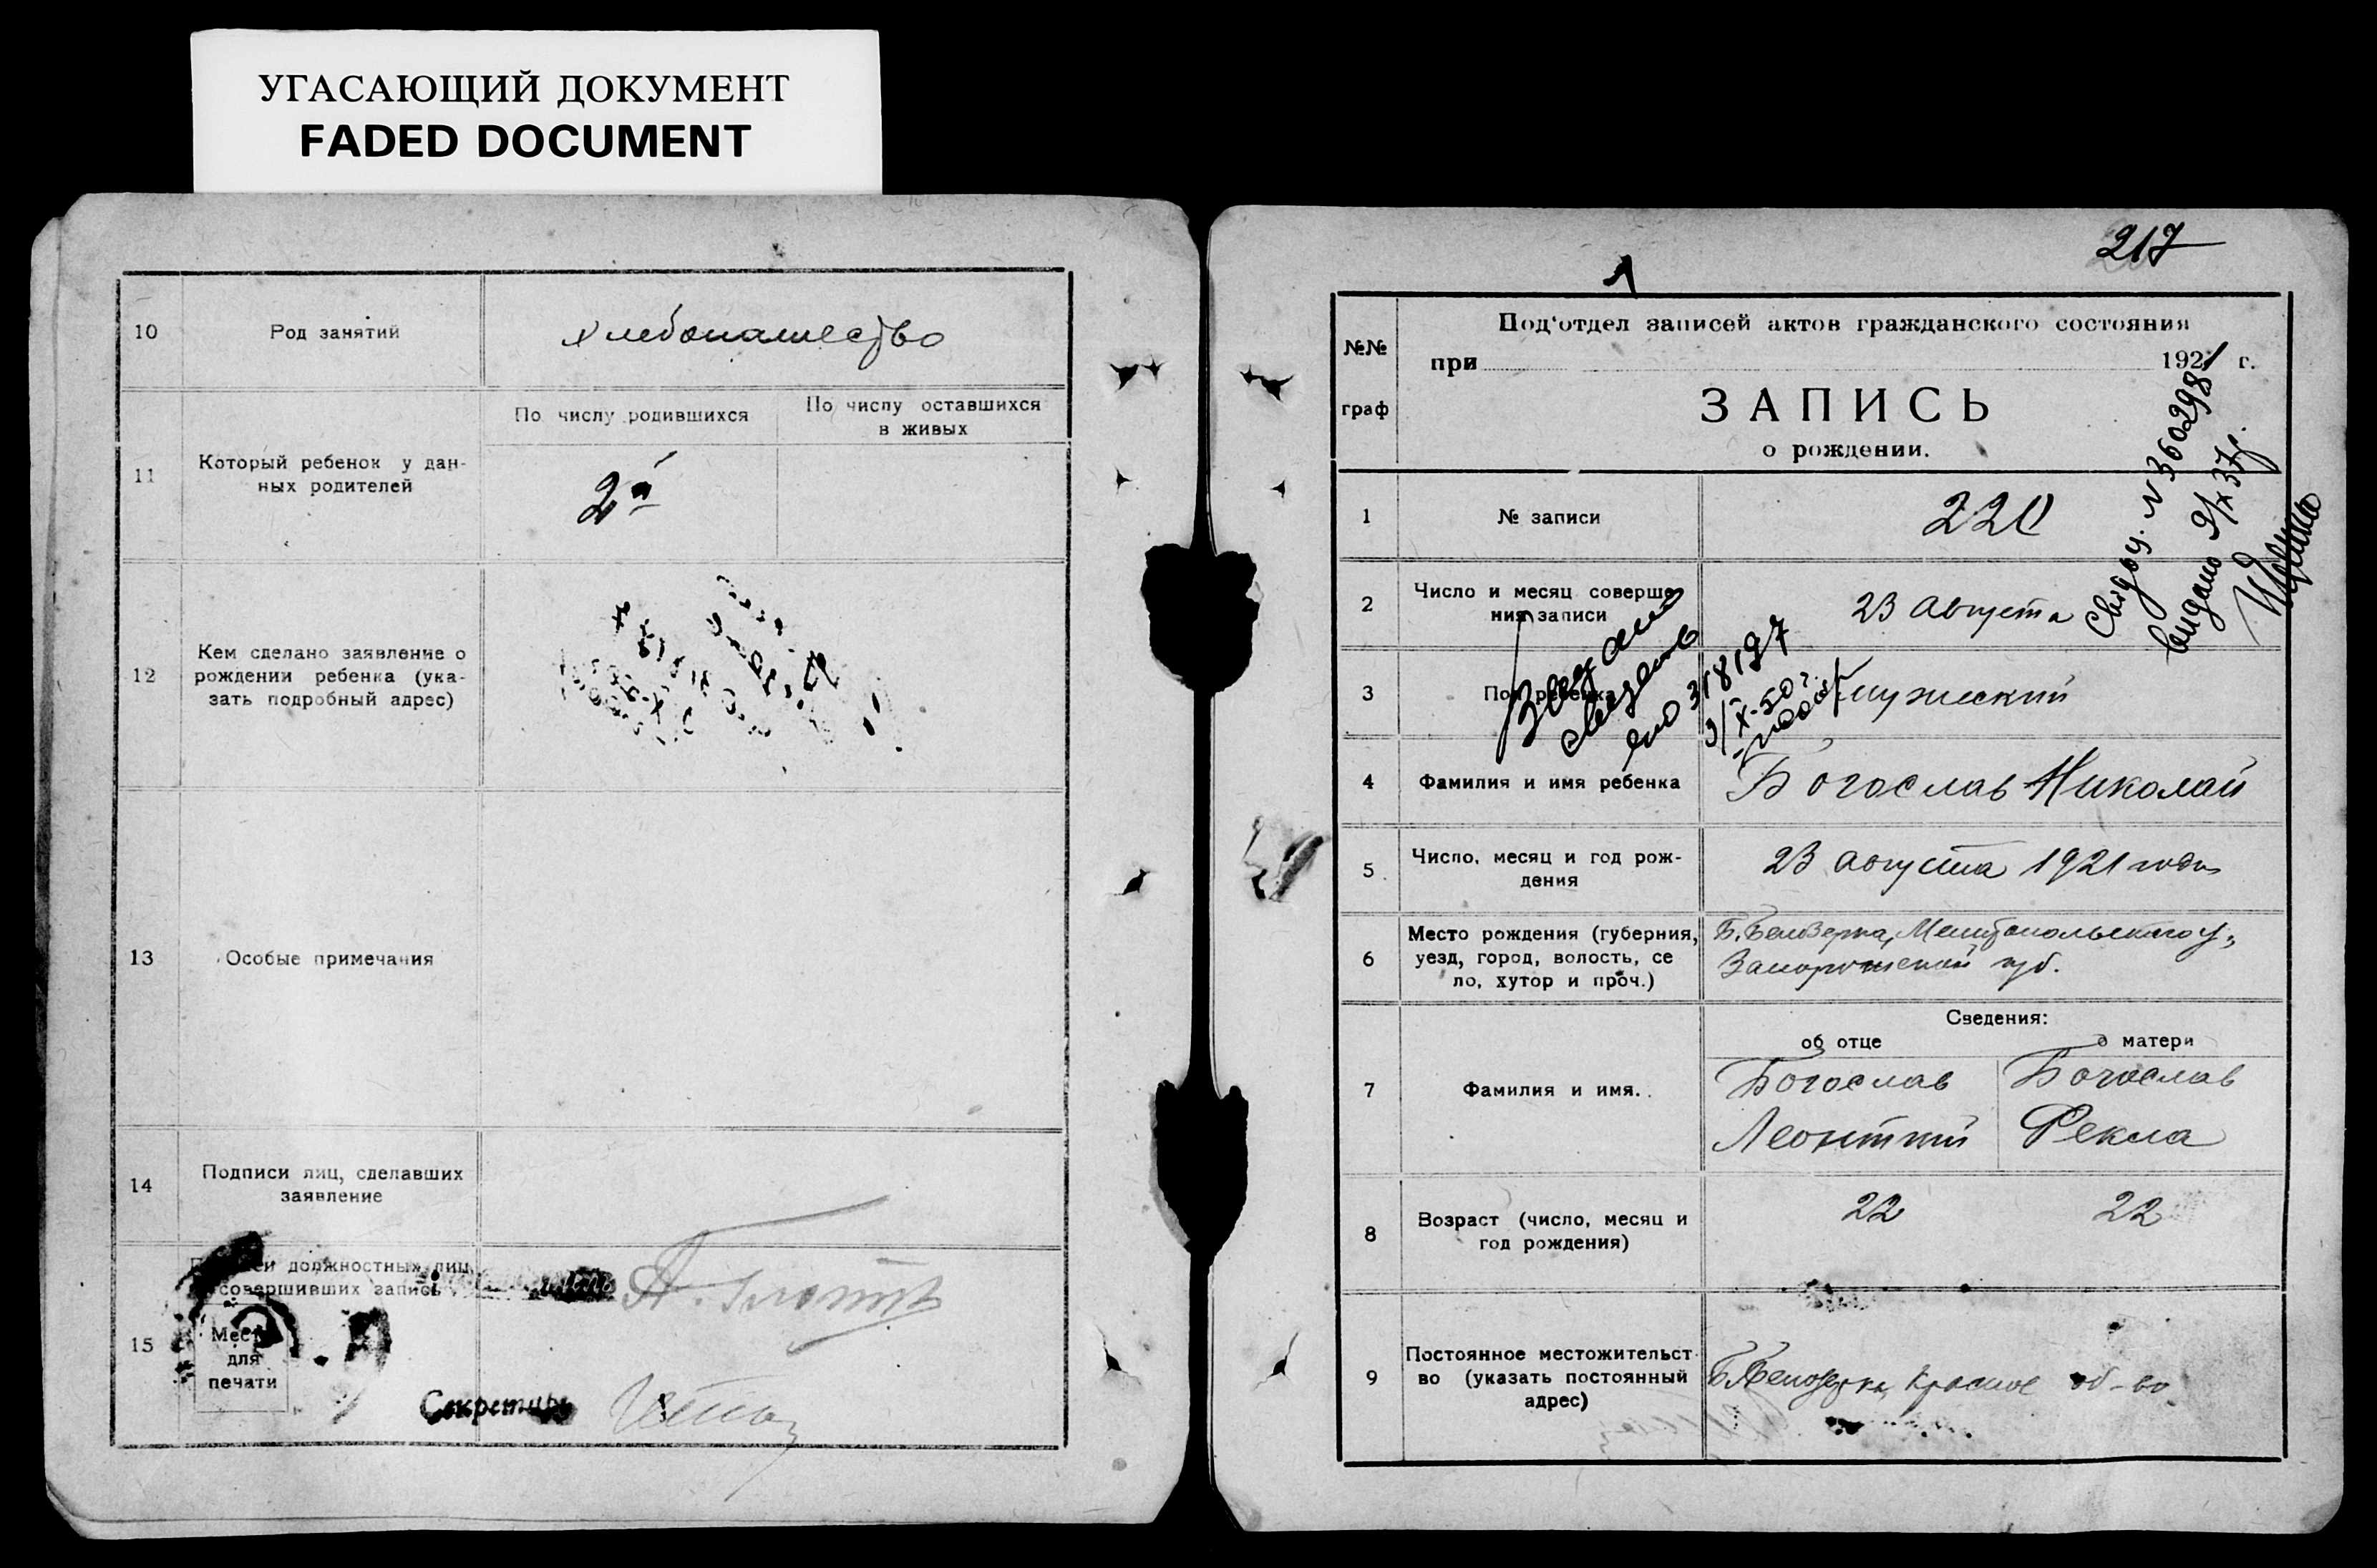 УГАСАЮЩИЙ ДОКУМЕНТ
FADED DOCUMENT
10
Род занятий
хлебопашество
11
Который ребенок у дан-
ных родителей
По числу родившихся
По числу оставшихся
в живых
2й
12
Кем сделано заявление о
рождении ребенка (ука-
зать подробный адрес)
13
Особые примечания
14
Подписи лиц, сделавших
заявление
15
должностных лиц,
совершивших запись
Место
для
печати
Секретарь
217
1
№№
граф
Под'отдел записей актов гражданского состояния
при 1921 г.
ЗАПИСЬ
о рождении.
Свидоц. N 360298
видано 9/X 37 р.
1
№ записи
220
2
Число и месяц соверше-
ния записи
23 Августа
3
Пол ребенка
мужский
318197
3/X-50 г.
4
Фамилия и имя ребенка
Богослав Николай
5
Число, месяц и год рож-
дения
23 августа 1921 года
6
Место рождения (губерния,
уезд, город, волость, се
ло, хутор и проч.)
Б. Белозерка, Мелитопольского у.,
Запорожской губ.
Сведения:
об отце
о матери
7
Фамилия и имя.
Богослав
Леонтий
Богослав
Фекла
8
Возраст (число, месяц и
год рождения)
22
22
9
Постоянное местожительст-
во (указать постоянный
адрес)
Б. Белозерка, Красное об-во